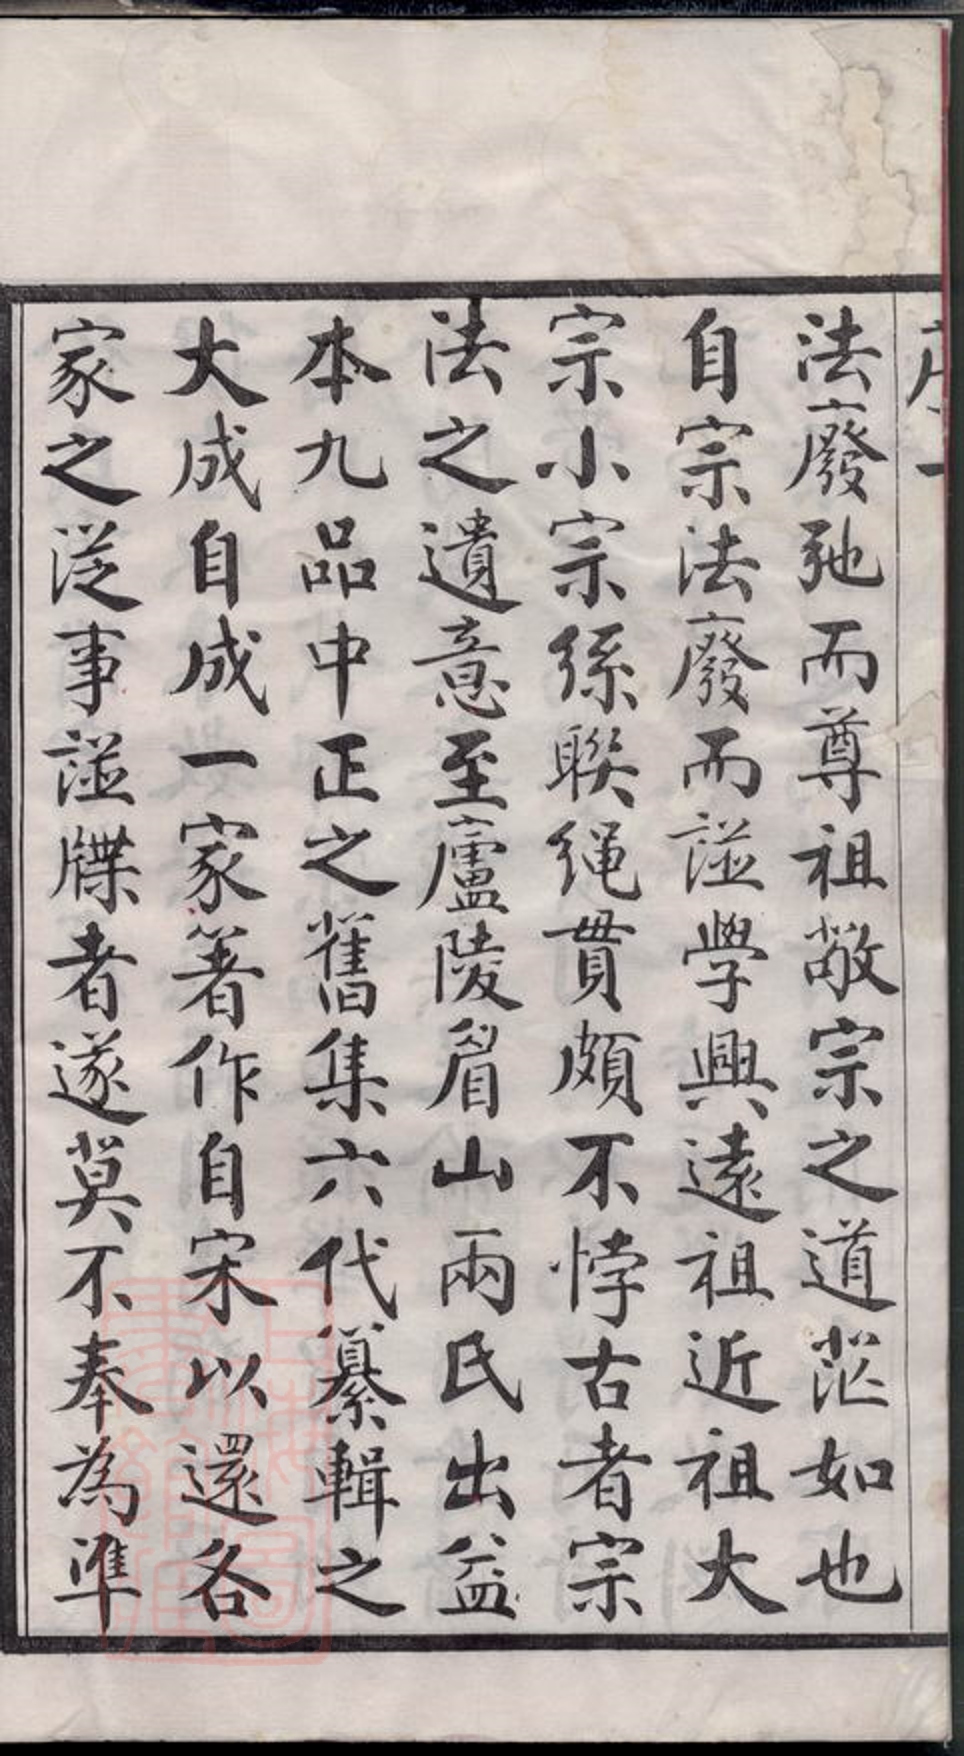 法廢弛而尊祖敬宗之道茫如也
自宗法廢而諡學興遠祖近祖大
宗小宗係聯繩貫頗不悖古者宗
法之遺意至廬陵眉山兩氏出益
本九品中正之舊集六代纂輯之
大成自成一家著作自宋以還各
家之從事諡牒者遂莫不奉為準